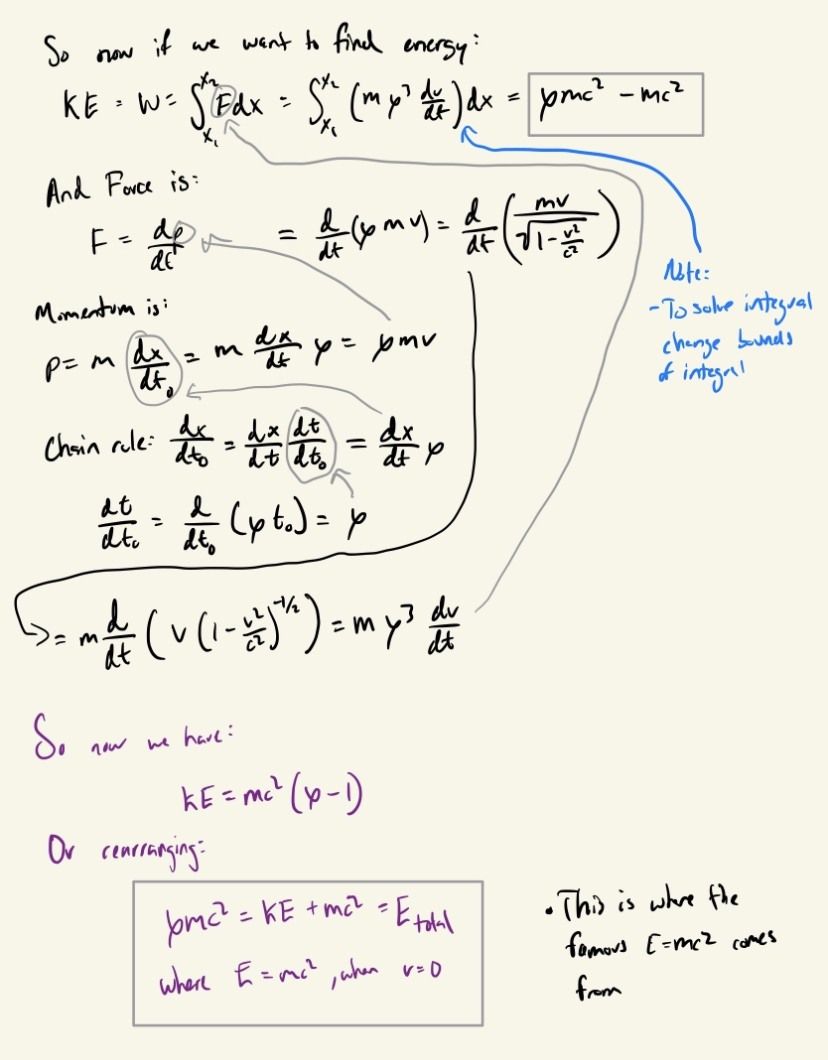 So now if we want to find energy:
KE = W = ∫_{x₁}^{x₂} F dx = ∫_{x₁}^{x₂} (m γ³ dv/dt) dx = γmc² − mc²
And Force is:
F = dp/dt = d/dt (γ m v) = d/dt (mv / √(1 − v²/c²))
Note:
- To solve integral
change bounds
of integral
Momentum is:
p = m dx/dt₀ = m dx/dt γ = γmv
Chain rule: dx/dt₀ = dx/dt dt/dt₀ = dx/dt γ
dt/dt₀ = d/dt₀ (γ t₀) = γ
= m d/dt (v (1 − v²/c²)^{-1/2}) = m γ³ dv/dt
So now we have:
KE = mc² (γ − 1)
Or rearranging:
γmc² = KE + mc² = E_total
where E = mc², when v = 0
• This is where the
famous E=mc² comes
from